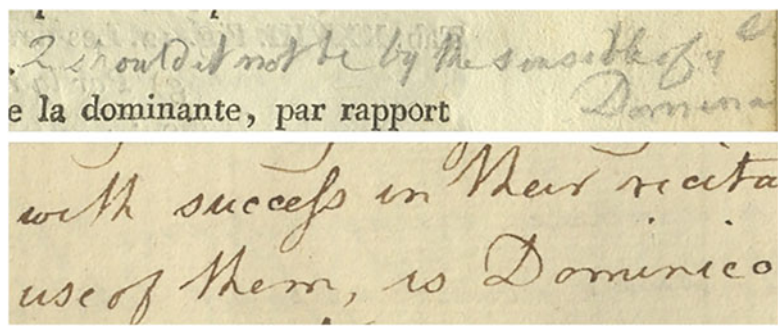 . 2 should it not be by the sensible of y
Domina
e la dominante, par rapport
with success in their recita
use of them, is Dominico